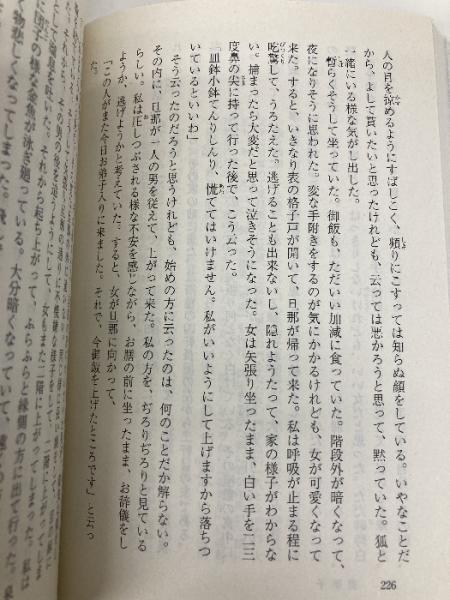 人の目を掠めるようにすばしこく、頻りにこすっては知らぬ顔をしている。いやなことだ
から、よして貰いたいと思ったけれども、云っては悪かろうと思って、黙っていた。狐と
一緒にいる様な気がし出した。
暫らくそうして坐っていた。御飯も、ただいい加減に食っていた。階段外が暗くなって、
夜になりそうに思われた。変な手附きをするのが気にかかるけれども、女が可愛くなって
来た。すると、いきなり表の格子戸が開いて、旦那が帰って来た。私は呼吸が止まる程に
吃驚して、うろたえた。逃げることも出来ないし、隠れようたって、家の様子がわからな
い。捕まったら大変だと思って泣きそうになった。女は矢張り坐ったまま、白い手を二三
度鼻の尖に持って行った後で、こう云った。
「皿鉢小鉢てんりしんり、慌ててはいけません。私がいいようにして上げますから落ちつ
いているといいわ」
そう云ったのだろうと思うけれども、始めの方に云ったのは、何のことだか解らない。
その内に、旦那が一人の男を従えて、上がって来た。私の方を、ぢろりぢろりと見ている
らしい。私は圧しつぶされる様な不安を感じながら、お膳の前に坐ったまま、お辞儀をし
ようか、逃げようかと考えていた。すると、女が旦那に向かって、
「この人がまた今日お弟子入りに来ました。それで、今御飯を上げたところです」と云っ
た。
226